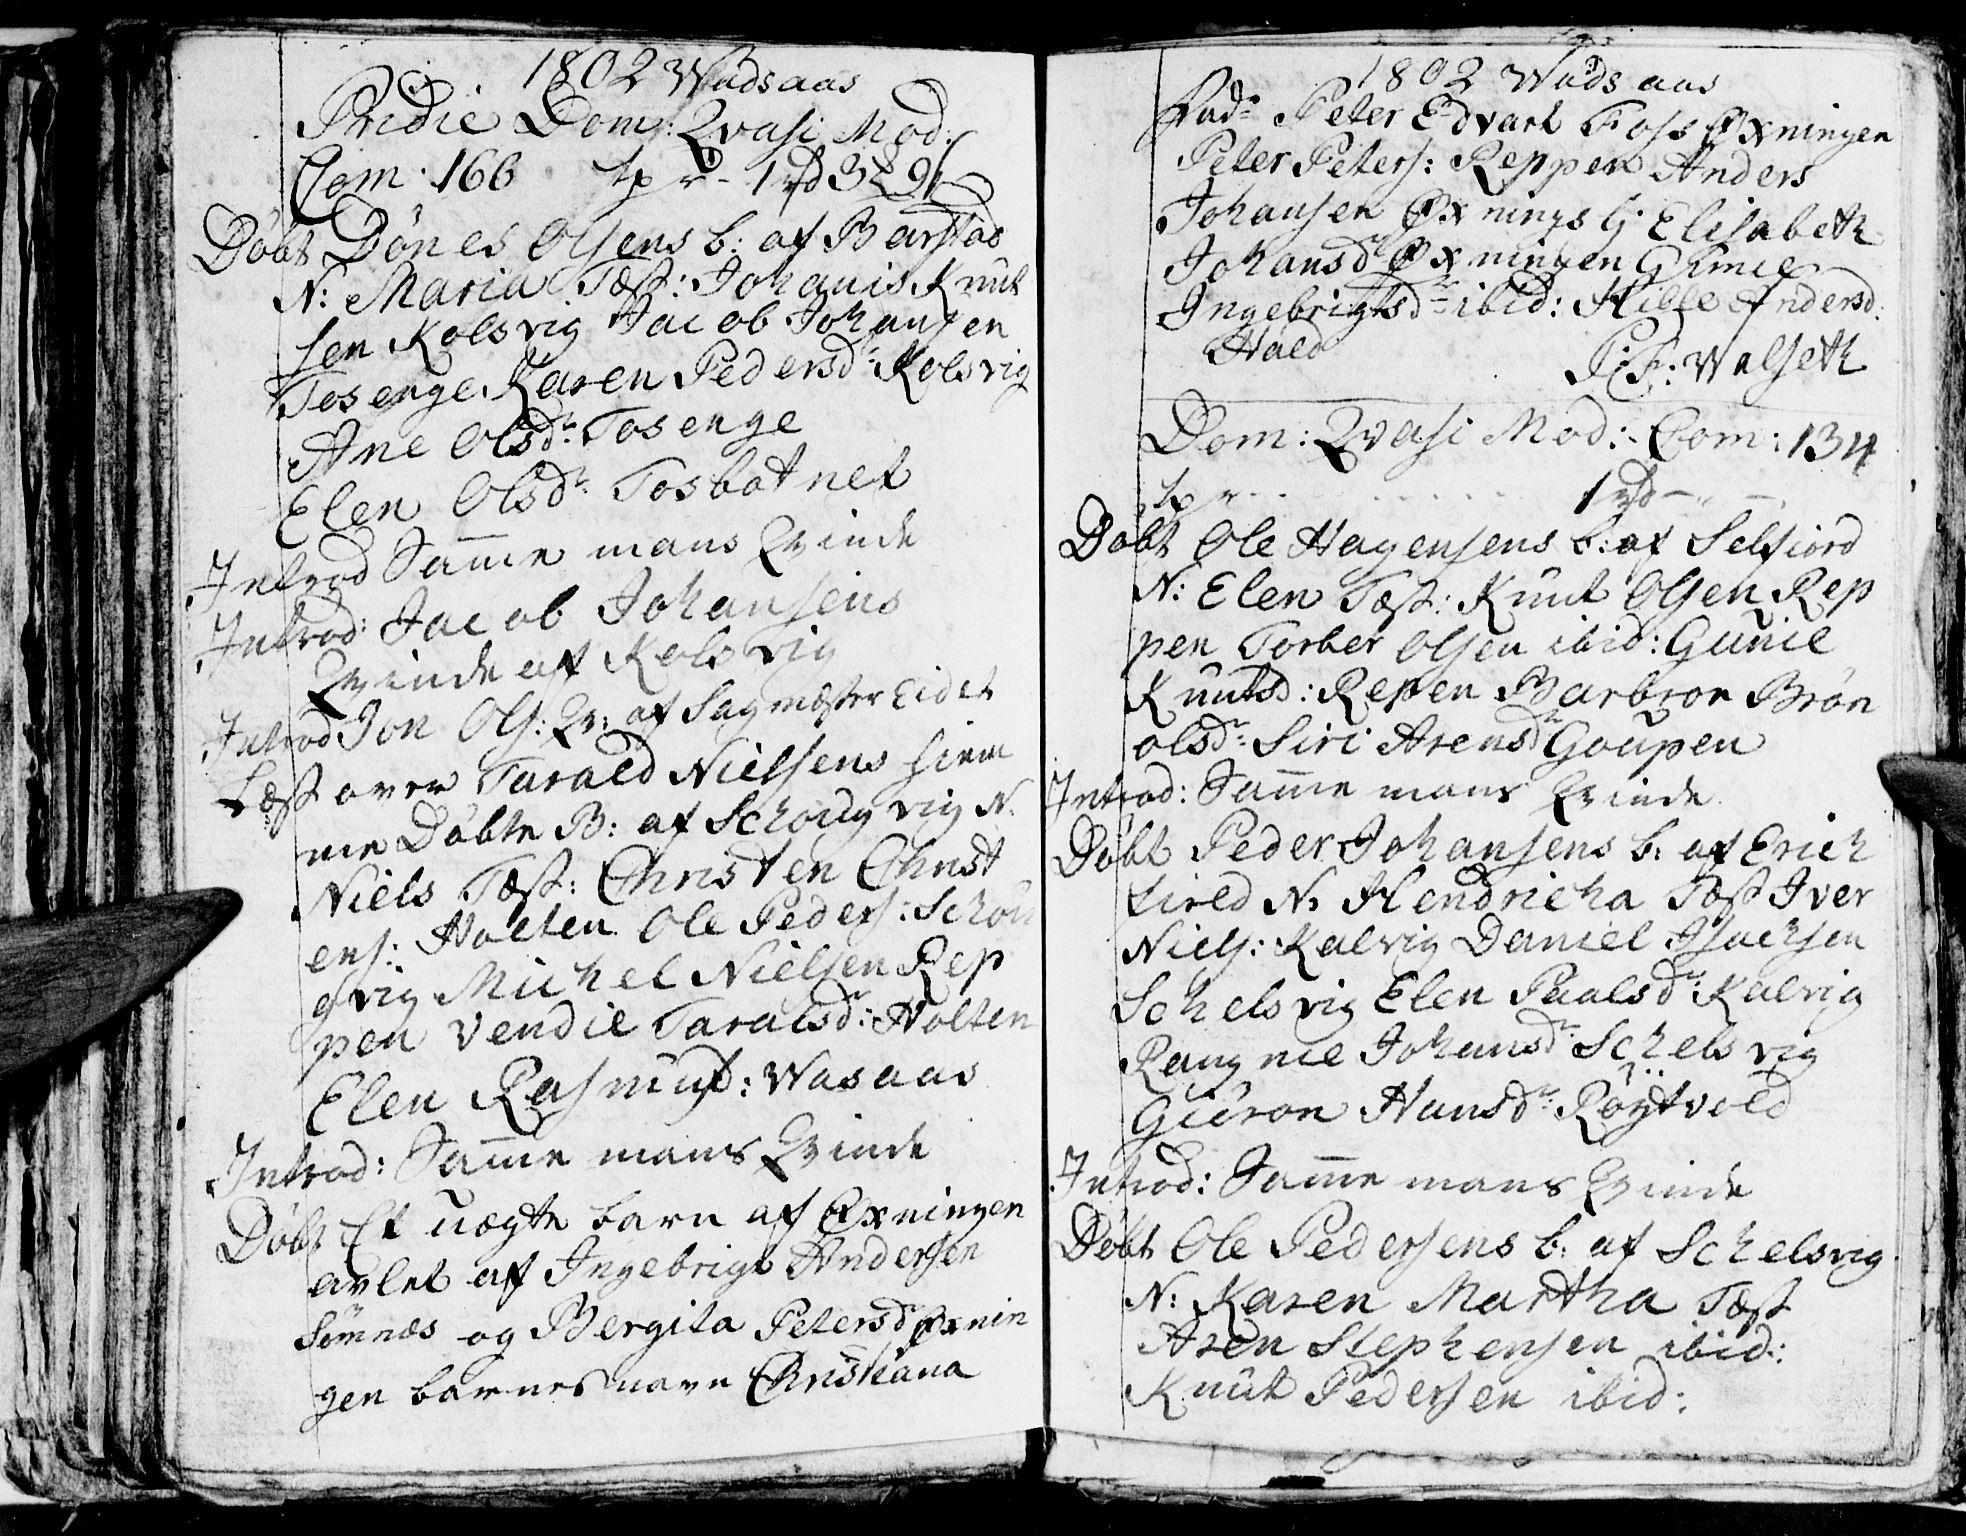 1802 Wadsaas
Pridie Dom: Qvasi Mod:
Com: 166
Døbt Dønes Olsens b: af Barstad
N: Maria Test: Johanis Knut
sen Kolsvig Jacob Johansen
Tosenge Karen Pedersdr: Kolsvig
Ane Olsdr: Tosenge
Elen Olsdr: Tosbotnet
Introd Samme mans Qvinde
Introd: Jacob Johansens
Qvinde af Kolsvig
Introd Jon Ols: Qv: af Sagmester Eidet
Læst over Tarald Nielsens hiem
me Døbte B: af Schougvig N.
Niels Test: Christen Christ
ens: Holten Ole Peders: Schou
gvig Michel Nielsen Rep
pen Vendil Taralsdr: Holten
Elen Rasmusd: Wasaas
Introd: Samme mans Qvinde
Døbt Et uægte barn af Øxningen
avlet af Ingebrigt Andersen
Sømnes og Bergita Petersdr Øxnin
gen barnes navn Christiana
1802 Wadsaas
Fad: Peter Edvart Foss Øxningen
Peter Peters: Reppen Anders
Johansen Øxning Elisabeth
Johansdr Øxningen Gunil
Ingebrigtsdr ibid: Hille Andersd:
Hald
P: F: Walseth
Dom: Qvasi Mod: Com: 134
1 rd
Døbt Ole Hagensens b: af Selfiord
N: Elen Test: Knut Olsen Rep
pen Torber Olsen ibid: Gunil
Knutsd: Repen Barbron Brøn
olsdr: Siri Arensdr Goupen
Introd: Samme mans Qvinde
Døbt Peder Johansens b: af Erich
fired N: Hendricha Test Iver
Niels: Kalvig Daniel Isachsen
Schelsvig Elen Paalsdr: Kalvig
Rangnil Johansdr: Schelsvig
Guron Hansdr: Røytvold
Introd: Samme mans Qvinde
Døbt Ole Pedersens b: af Schelsvig
N: Karen Martha Test
Aren Stephensen ibid:
Knut Pedersen ibid: